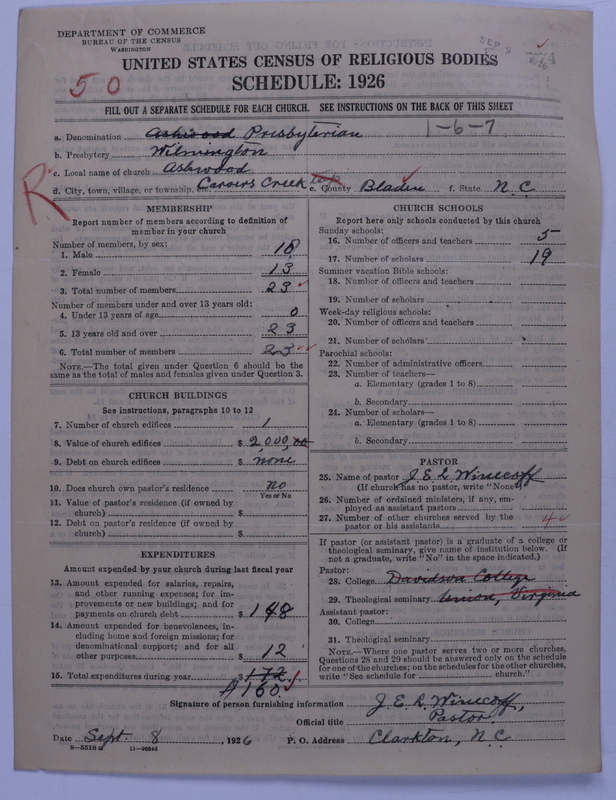 DEPARTMENT OF COMMERCE
BUREAU OF THE CENSUS
WASHINGTON
SEP 9
UNITED STATES CENSUS OF RELIGIOUS BODIES
50
SCHEDULE: 1926
FILL OUT A SEPARATE SCHEDULE FOR EACH CHURCH. SEE INSTRUCTIONS ON THE BACK OF THIS SHEET
1-6-7
a. Denomination Ashwood Presbyterian
b. Presbytery Wilmington
c. Local name of church Ashwood
R
d. City, town, village, or township, Carvers Creek e. County Bladen f. State N.C.
MEMBERSHIP
Report number of members according to definition of
member in your church
Number of members, by sex:
1. Male 10
2. Female 13
3. Total number of members 23
Number of members under and over 13 years old:
4. Under 13 years of age 0
5. 13 years old and over 23
6. Total number of members 23
NOTE.—The total given under Question 6 should be
the same as the total of males and females given under Question 3.
CHURCH BUILDINGS
See instructions, paragraphs 10 to 12
7. Number of church edifices 1
8. Value of church edifices $ 2,000,00
9. Debt on church edifices $ none
10. Does church own pastor's residence no
Yes or No
11. Value of pastor's residence (if owned by
church) $
12. Debt on pastor's residence (if owned by
church) $
EXPENDITURES
Amount expended by your church during last fiscal year
13. Amount expended for salaries, repairs,
and other running expenses; for im-
provements or new buildings; and for
payments on church debt $ 148
14. Amount expended for benevolences, in-
cluding home and foreign missions; for
denominational support; and for all
other purposes $ 12
15. Total expenditures during year $ 172
$160.
CHURCH SCHOOLS
Report here only schools conducted by this church
Sunday schools:
16. Number of officers and teachers 5
17. Number of scholars 19
Summer vacation Bible schools:
18. Number of officers and teachers
19. Number of scholars
Week-day religious schools:
20. Number of officers and teachers
21. Number of scholars
Parochial schools:
22. Number of administrative officers
23. Number of teachers—
a. Elementary (grades 1 to 8)
b. Secondary
24. Number of scholars—
a. Elementary (grades 1 to 8)
b. Secondary
PASTOR
25. Name of pastor J E L Winecoff
(If church has no pastor, write "None")
26. Number of ordained ministers, if any, em-
ployed as assistant pastors
27. Number of other churches served by the
pastor or his assistants 4
If pastor (or assistant pastor) is a graduate of a college or
theological seminary, give name of institution below. (If
not a graduate, write "No" in the space indicated.)
Pastor:
28. College Davidson College
29. Theological seminary Union, Virginia
Assistant pastor:
30. College
31. Theological seminary
NOTE.—Where one pastor serves two or more churches,
Questions 28 and 29 should be answered only on the schedule
for one of the churches; on the schedules for the other churches,
write "See schedule for church."
Signature of person furnishing information J. E. L. Winecoff,
Official title Pastor.
Date Sept. 8, 1926 P. O. Address Clarkton, N.C.
8—5518a 11—9084a